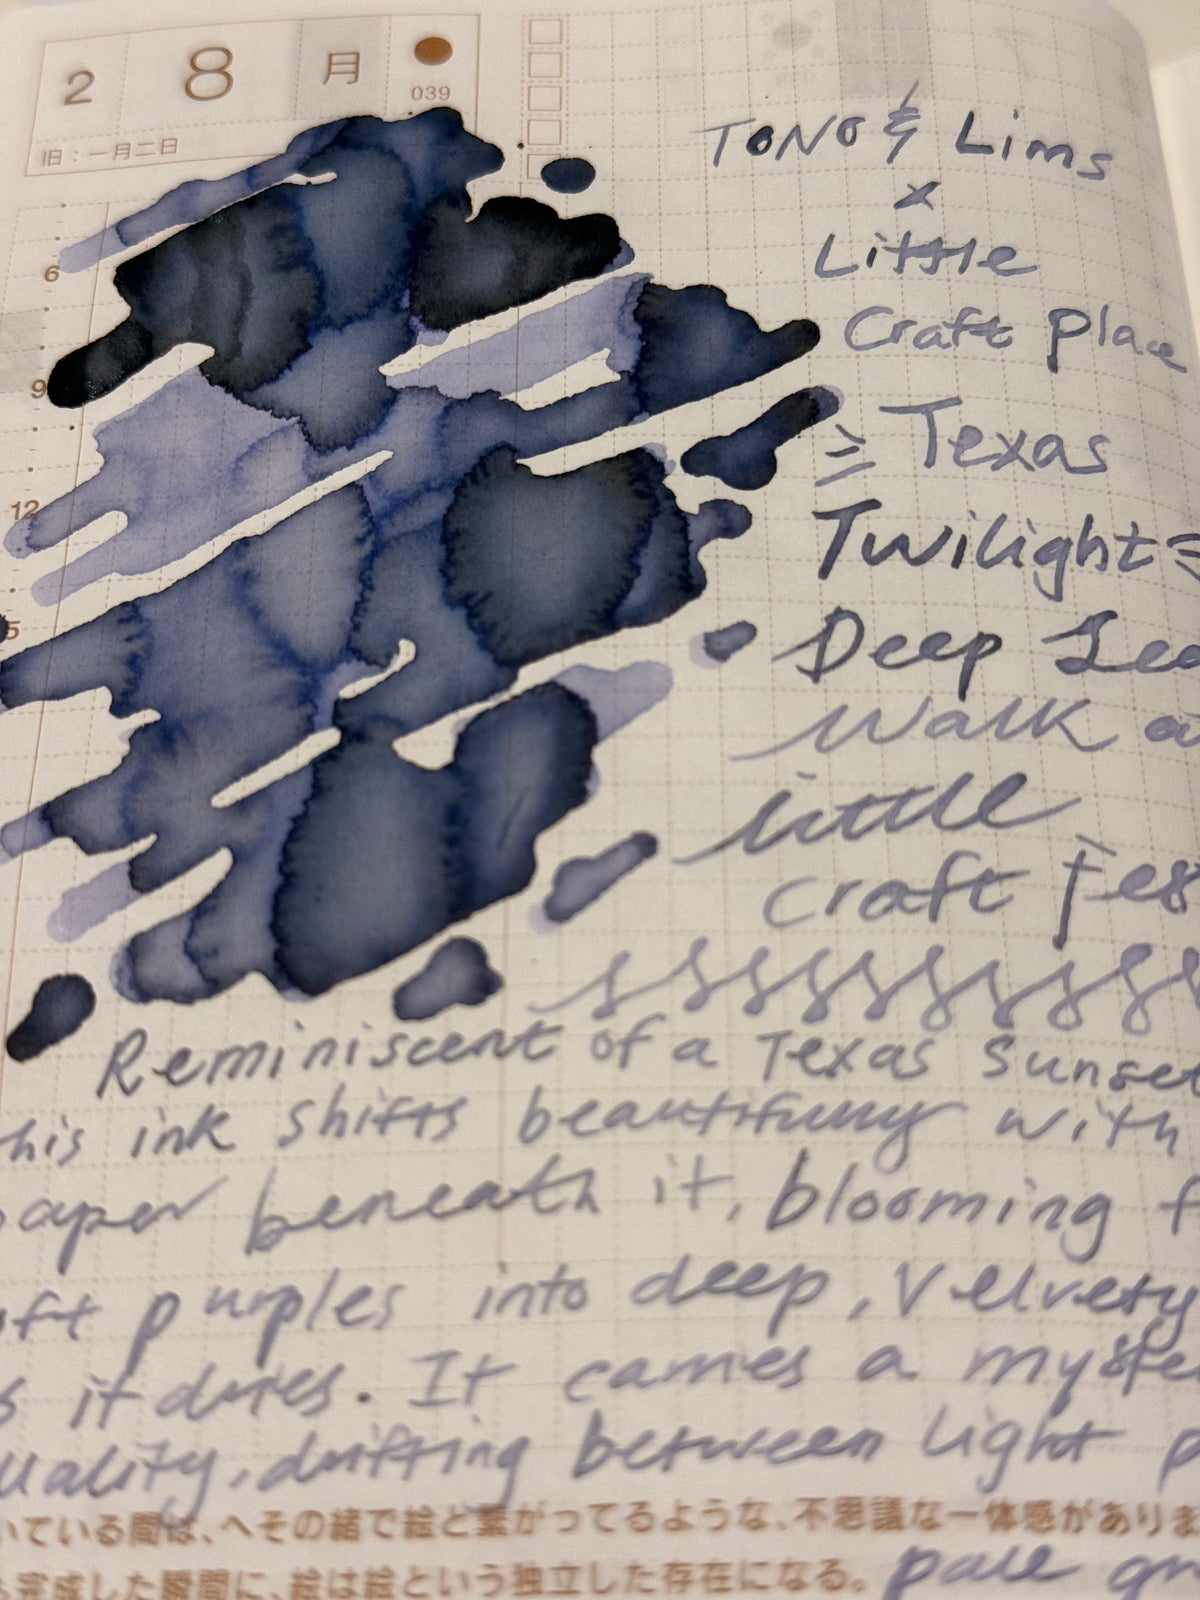 2 8 月
039
旧：一月二日
6
9
12
TONO & Lims
x
Little
Craft Place
= Texas
Twilight =
Deep Sea
Walk a
little
Craft Fes
Reminiscent of a Texas Sunset
his ink shifts beautifully with
paper beneath it, blooming f
ft purples into deep, velvety
s it dries. It carries a myste
uality, drifting between light p
いている間は、へその緒で絵と繋がってるような、不思議な一体感がありま
完成した瞬間に、絵は絵という独立した存在になる。
pale gr